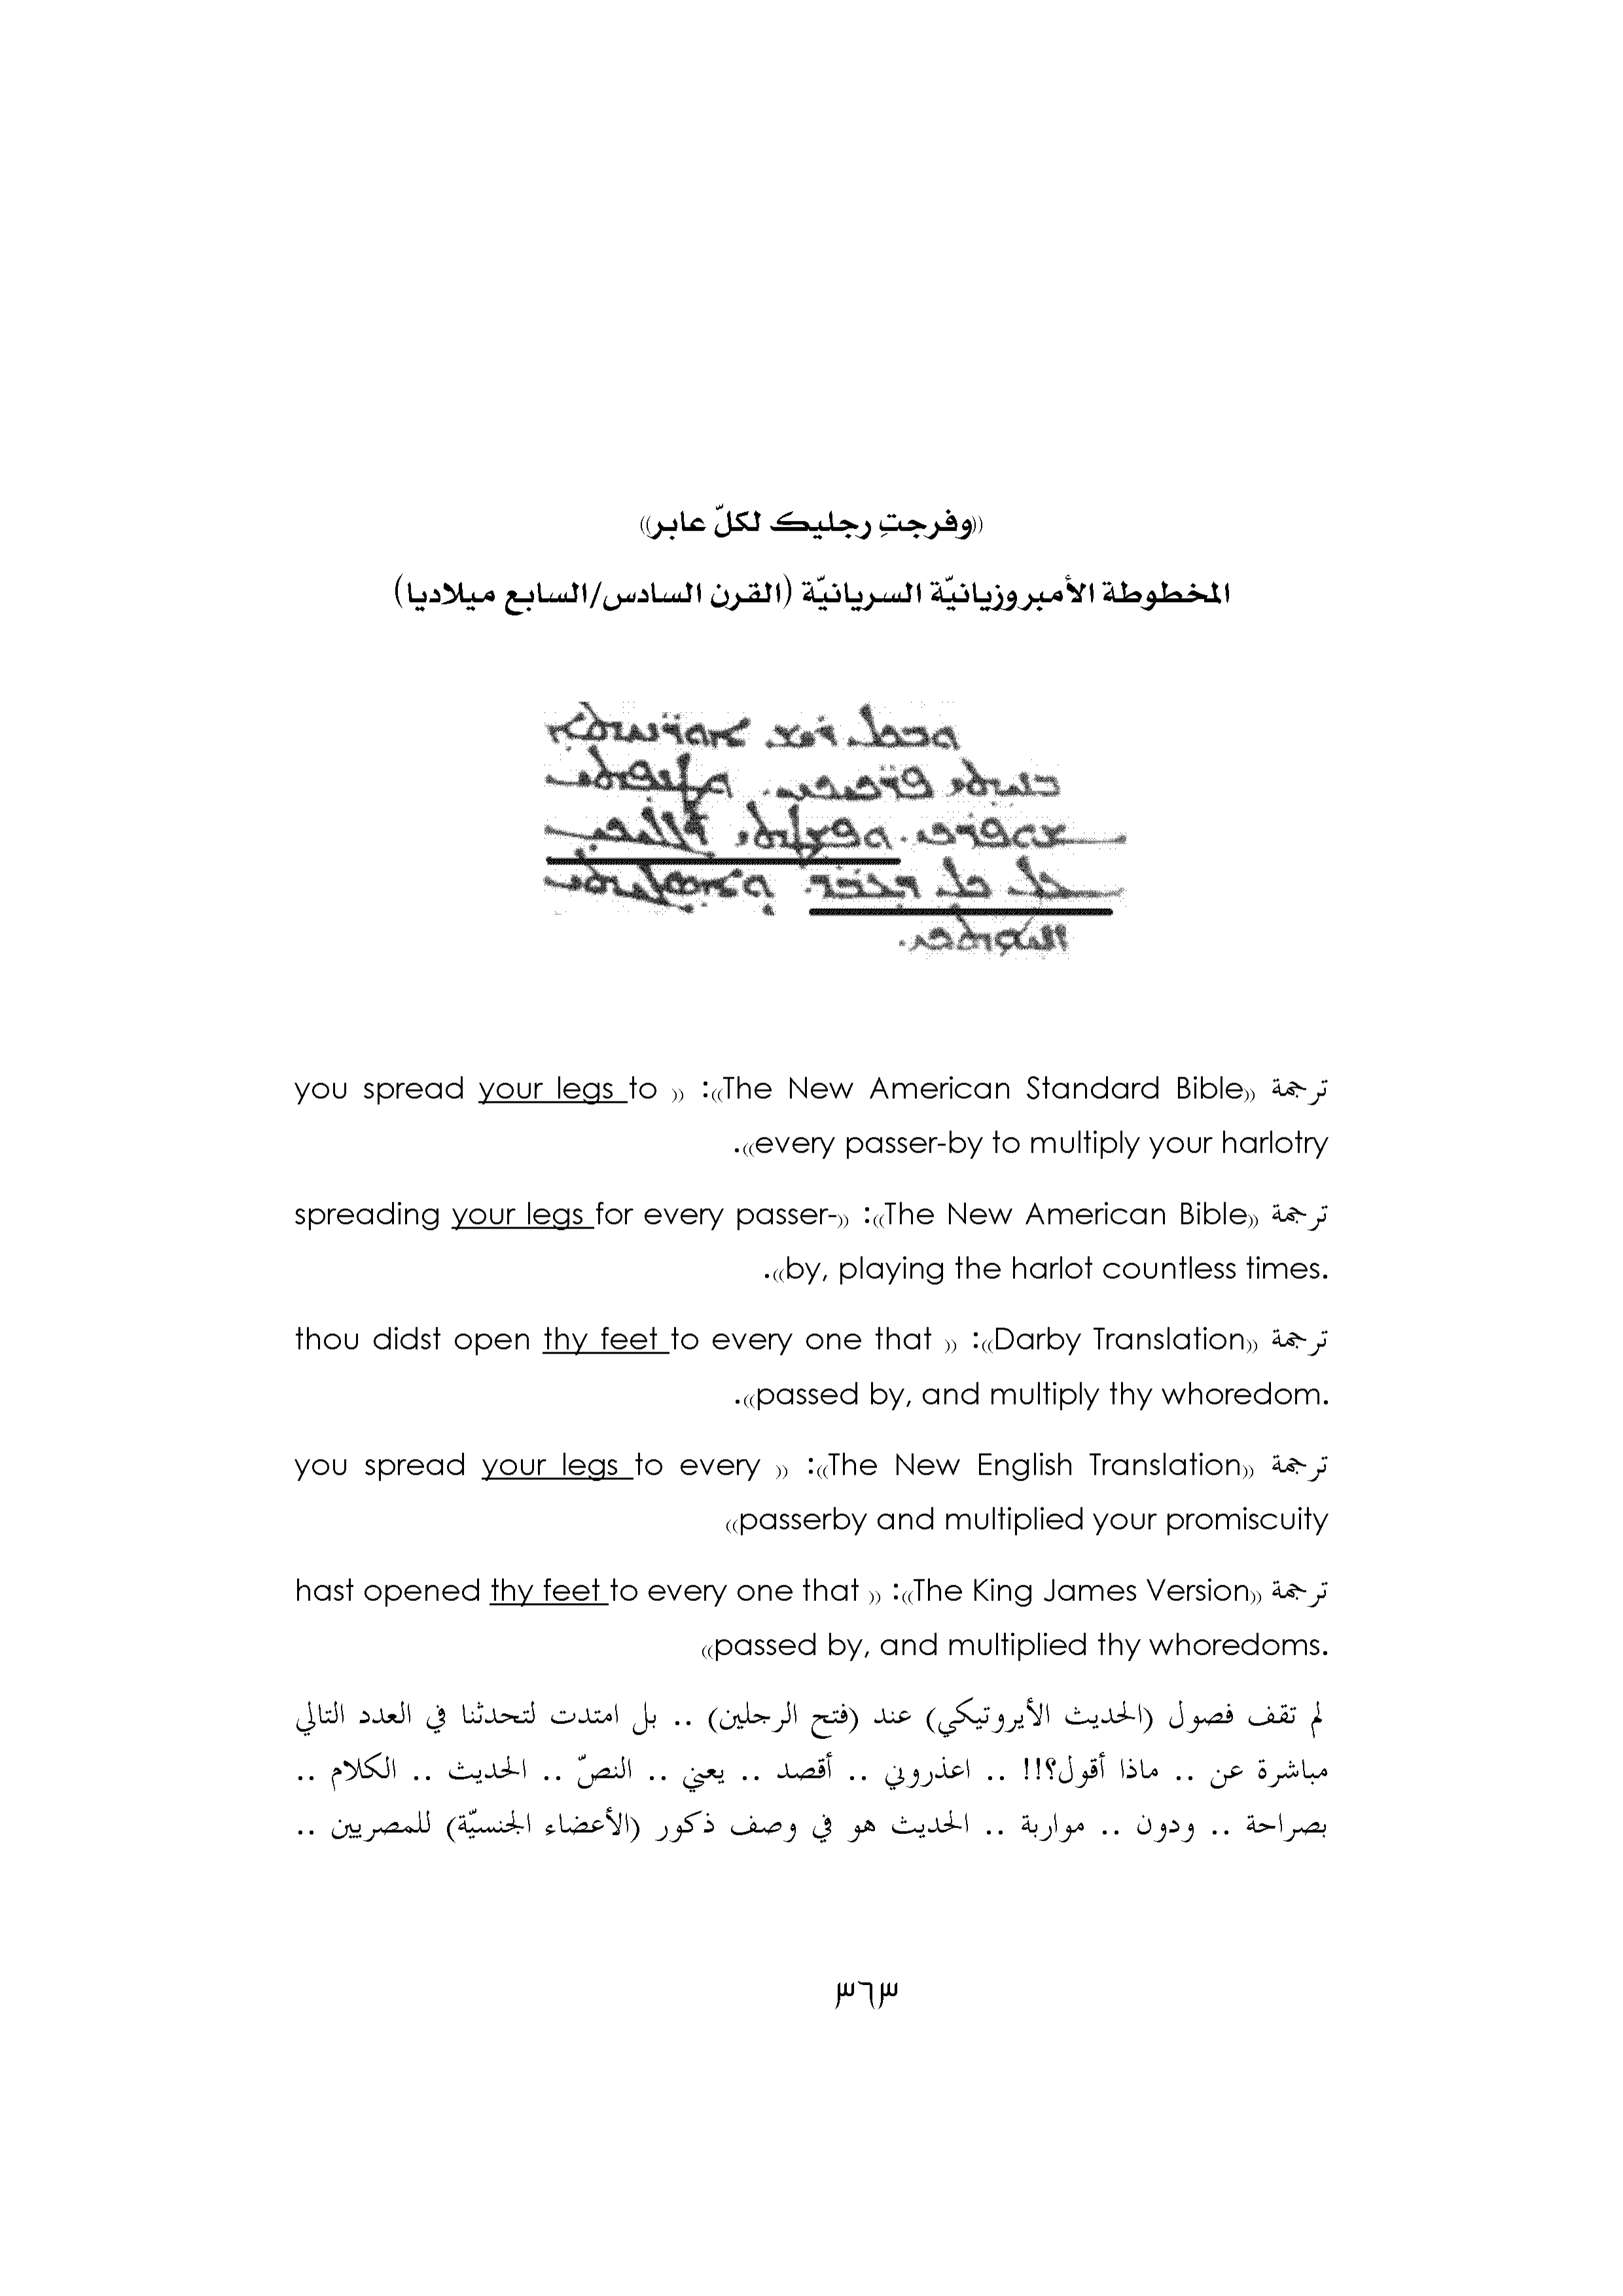 «وفرجتِ رجليك لكلّ عابر»
المخطوطة الأمبروزيانيّة السريانيّة (القرن السادس/السابع ميلاديا)
ترجمة «The New American Standard Bible»: « you spread your legs to
every passer-by to multiply your harlotry».
ترجمة «The New American Bible»: «spreading your legs for every passer-
by, playing the harlot countless times.».
ترجمة «Darby Translation»: « thou didst open thy feet to every one that
passed by, and multiply thy whoredom.».
ترجمة «The New English Translation»: « you spread your legs to every
passerby and multiplied your promiscuity»
ترجمة «The King James Version»: « hast opened thy feet to every one that
passed by, and multiplied thy whoredoms.»
لم تقف فصول (الحديث الأيروتيكي) عند (فتح الرجلين) .. بل امتدت لتحدثنا في العدد التالي
مباشرة عن .. ماذا أقول؟!!! .. اعذروني .. أقصد .. يعني .. النصّ .. الحديث .. الكلام ..
بصراحة .. ودون .. مواربة .. الحديث هو في وصف ذكور (الأعضاء الجنسيّة) للمصريين ..
٣٦٣